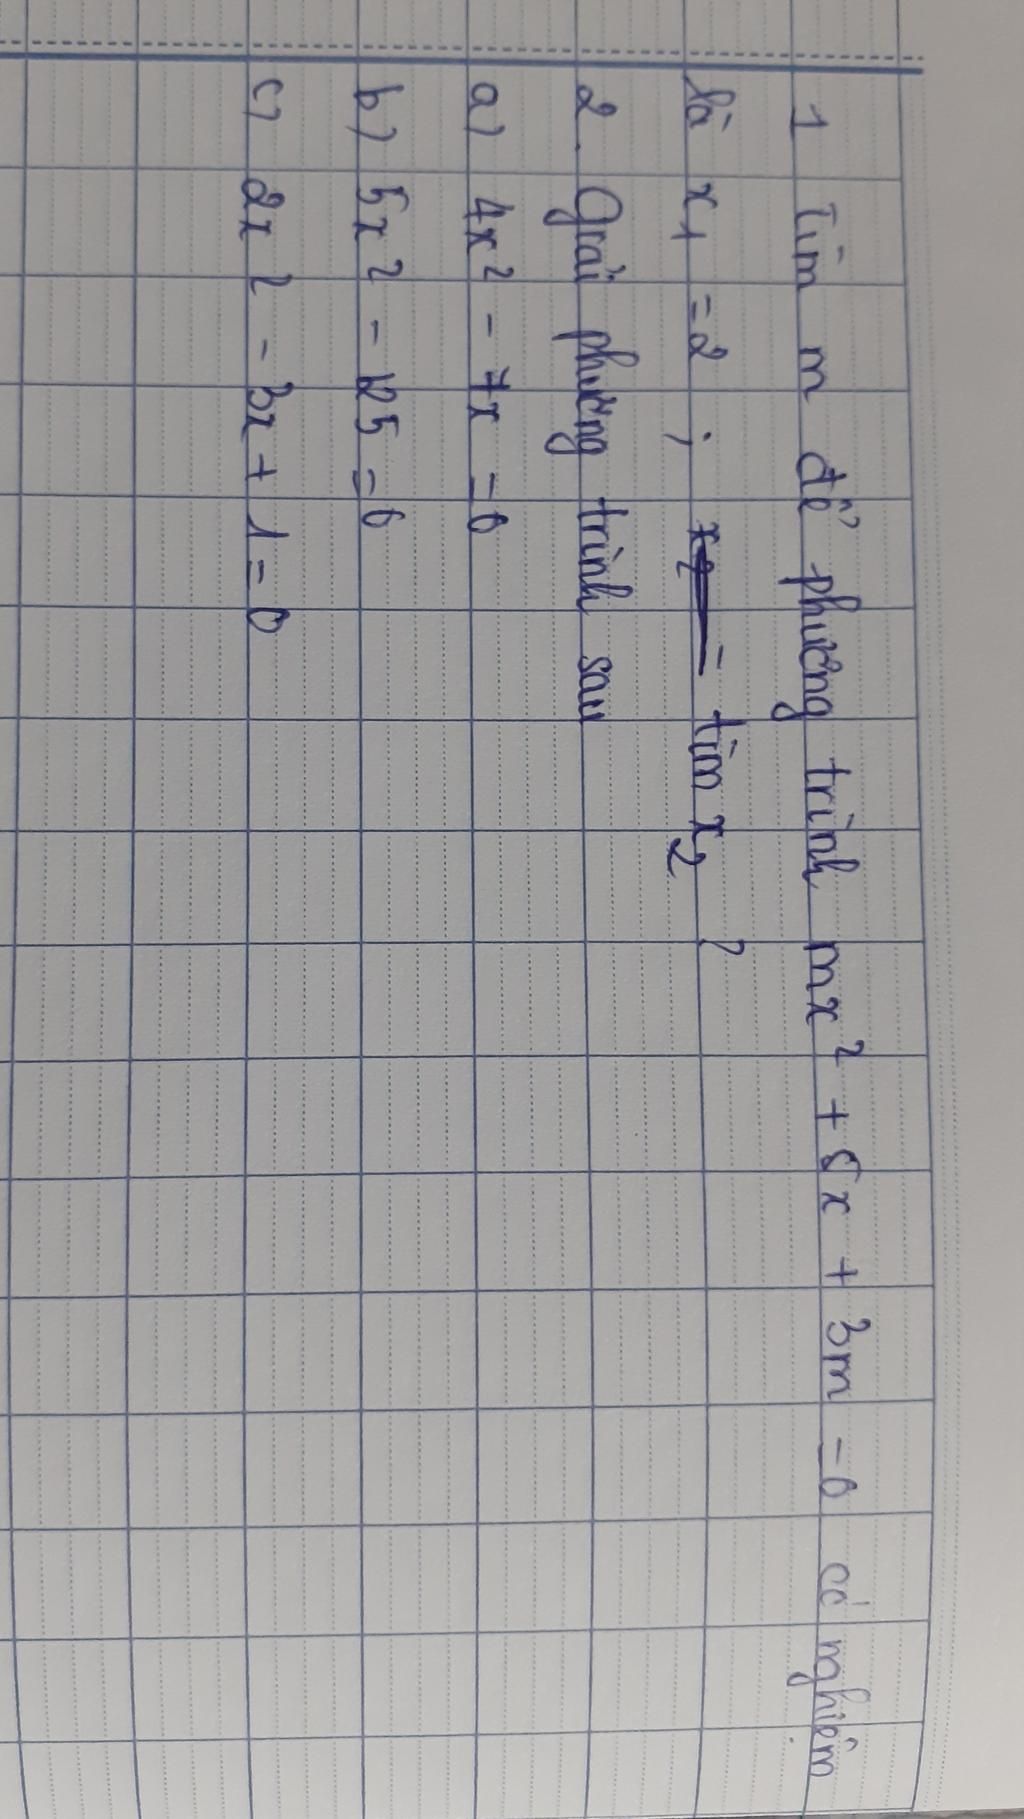 1 Tìm m để phương trình mx² + 5x + 3m = 0 có nghiệm
là x₁ = 2 ; tìm x₂ ?
2. Giải phương trình sau
a) 4x² - 7x = 0
b) 5x² - 125 = 0
c) 2x² - 3x + 1 = 0